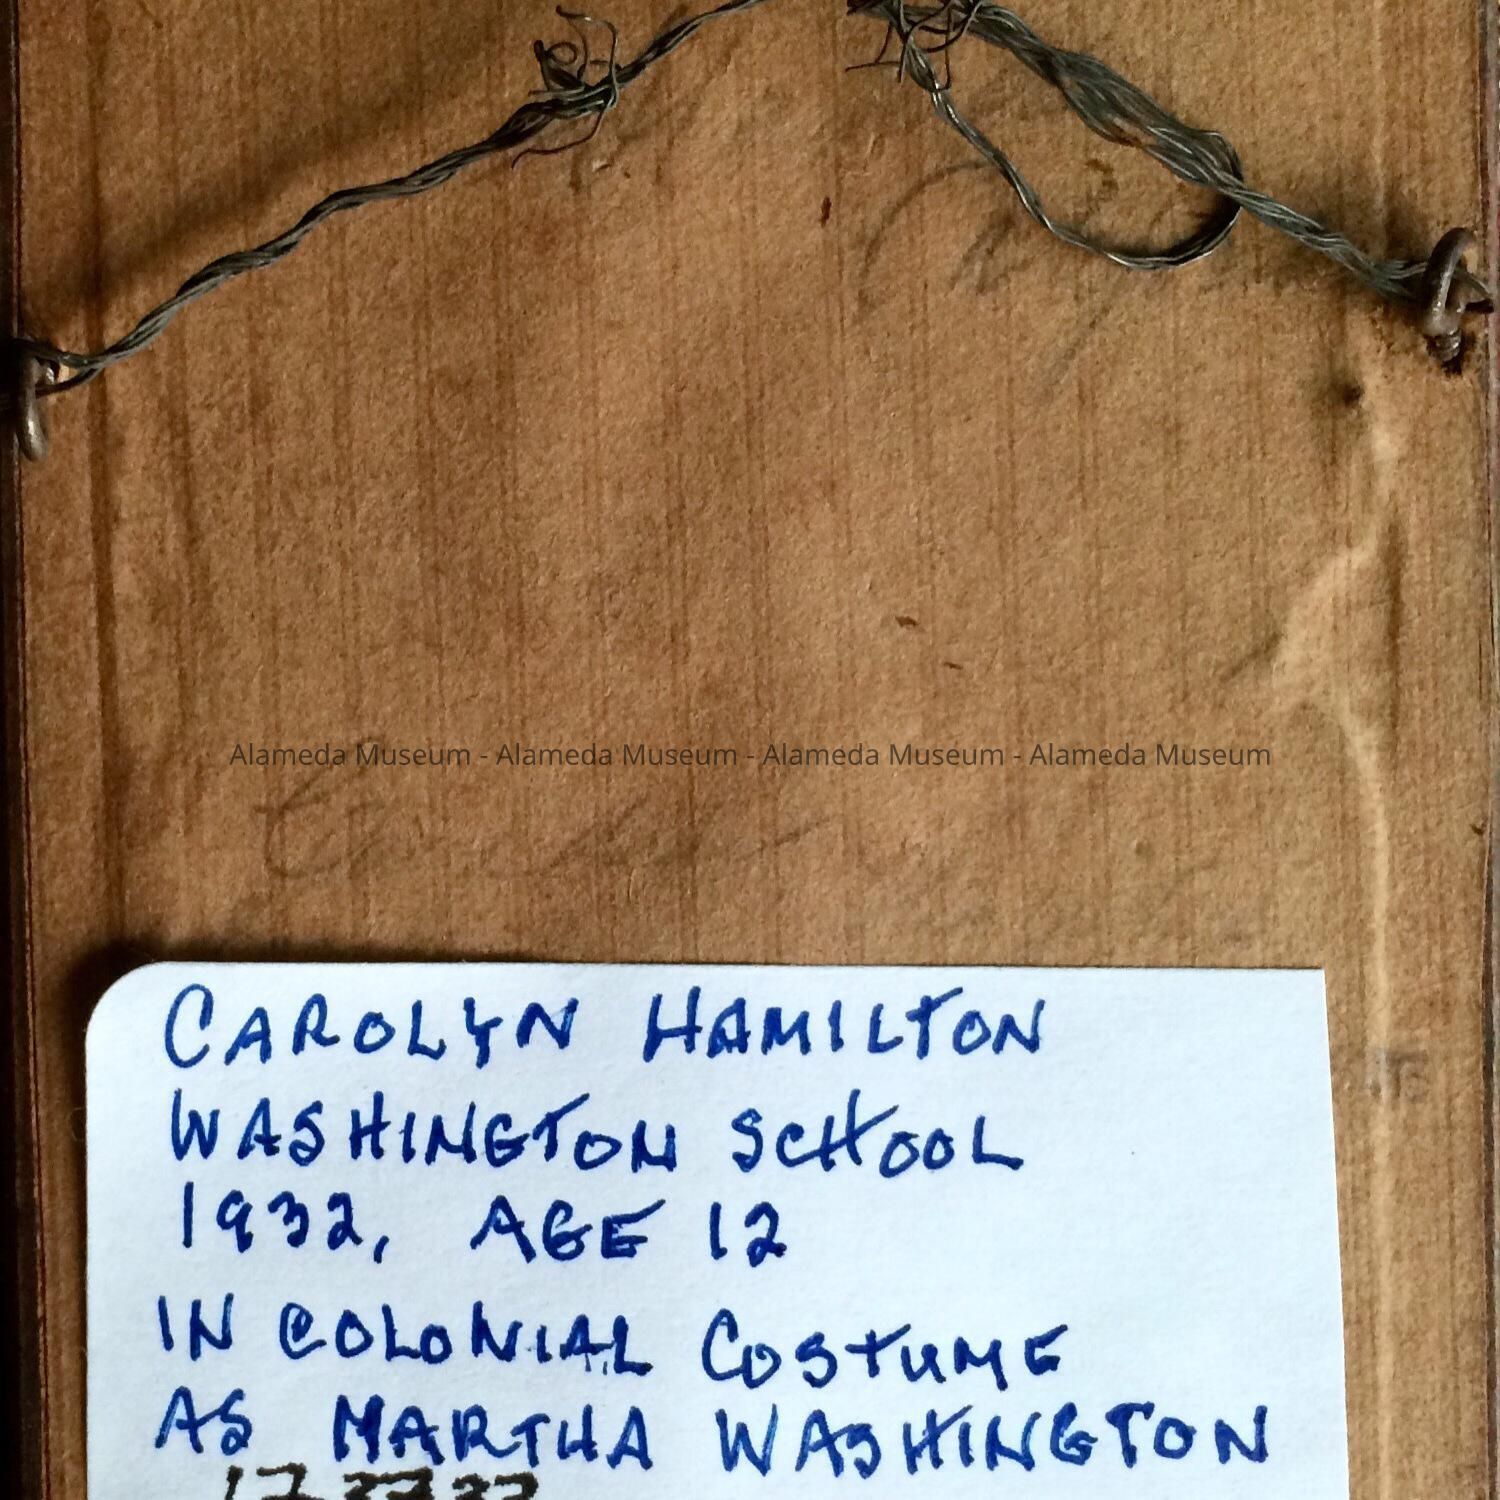 Alameda Museum - Alameda Museum - Alameda Museum - Alameda Museum
CAROLYN HAMILTON
WASHINGTON SCHOOL
1932, AGE 12
IN COLONIAL COSTUME
AS MARTHA WASHINGTON